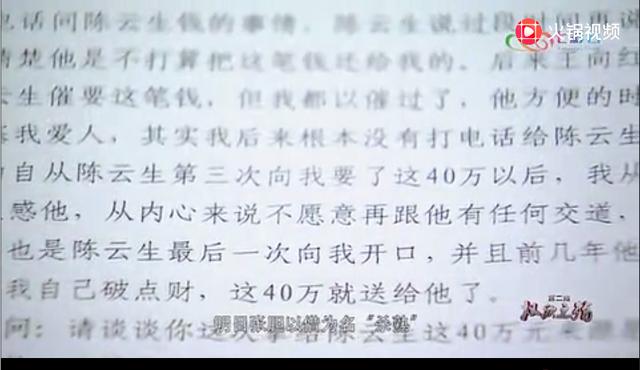 火锅视频
话问陈云生钱的事情，陈云生说过段
清楚他是不打算把这笔钱还给我的。后来王向红
云生催要这笔钱，但我都以催过了，他方便的时
我爱人，其实我后来根本没有打电话给陈云生
自从陈云生第三次向我要了这40万以后，我从
感他，从内心来说不愿意再跟他有任何交道，
也是陈云生最后一次向我开口，并且前几年他
我自己破点财，这40万就送给他了。
问：请谈谈你这次拿给陈云生这40万元
明目张胆以借为名“杀熟”